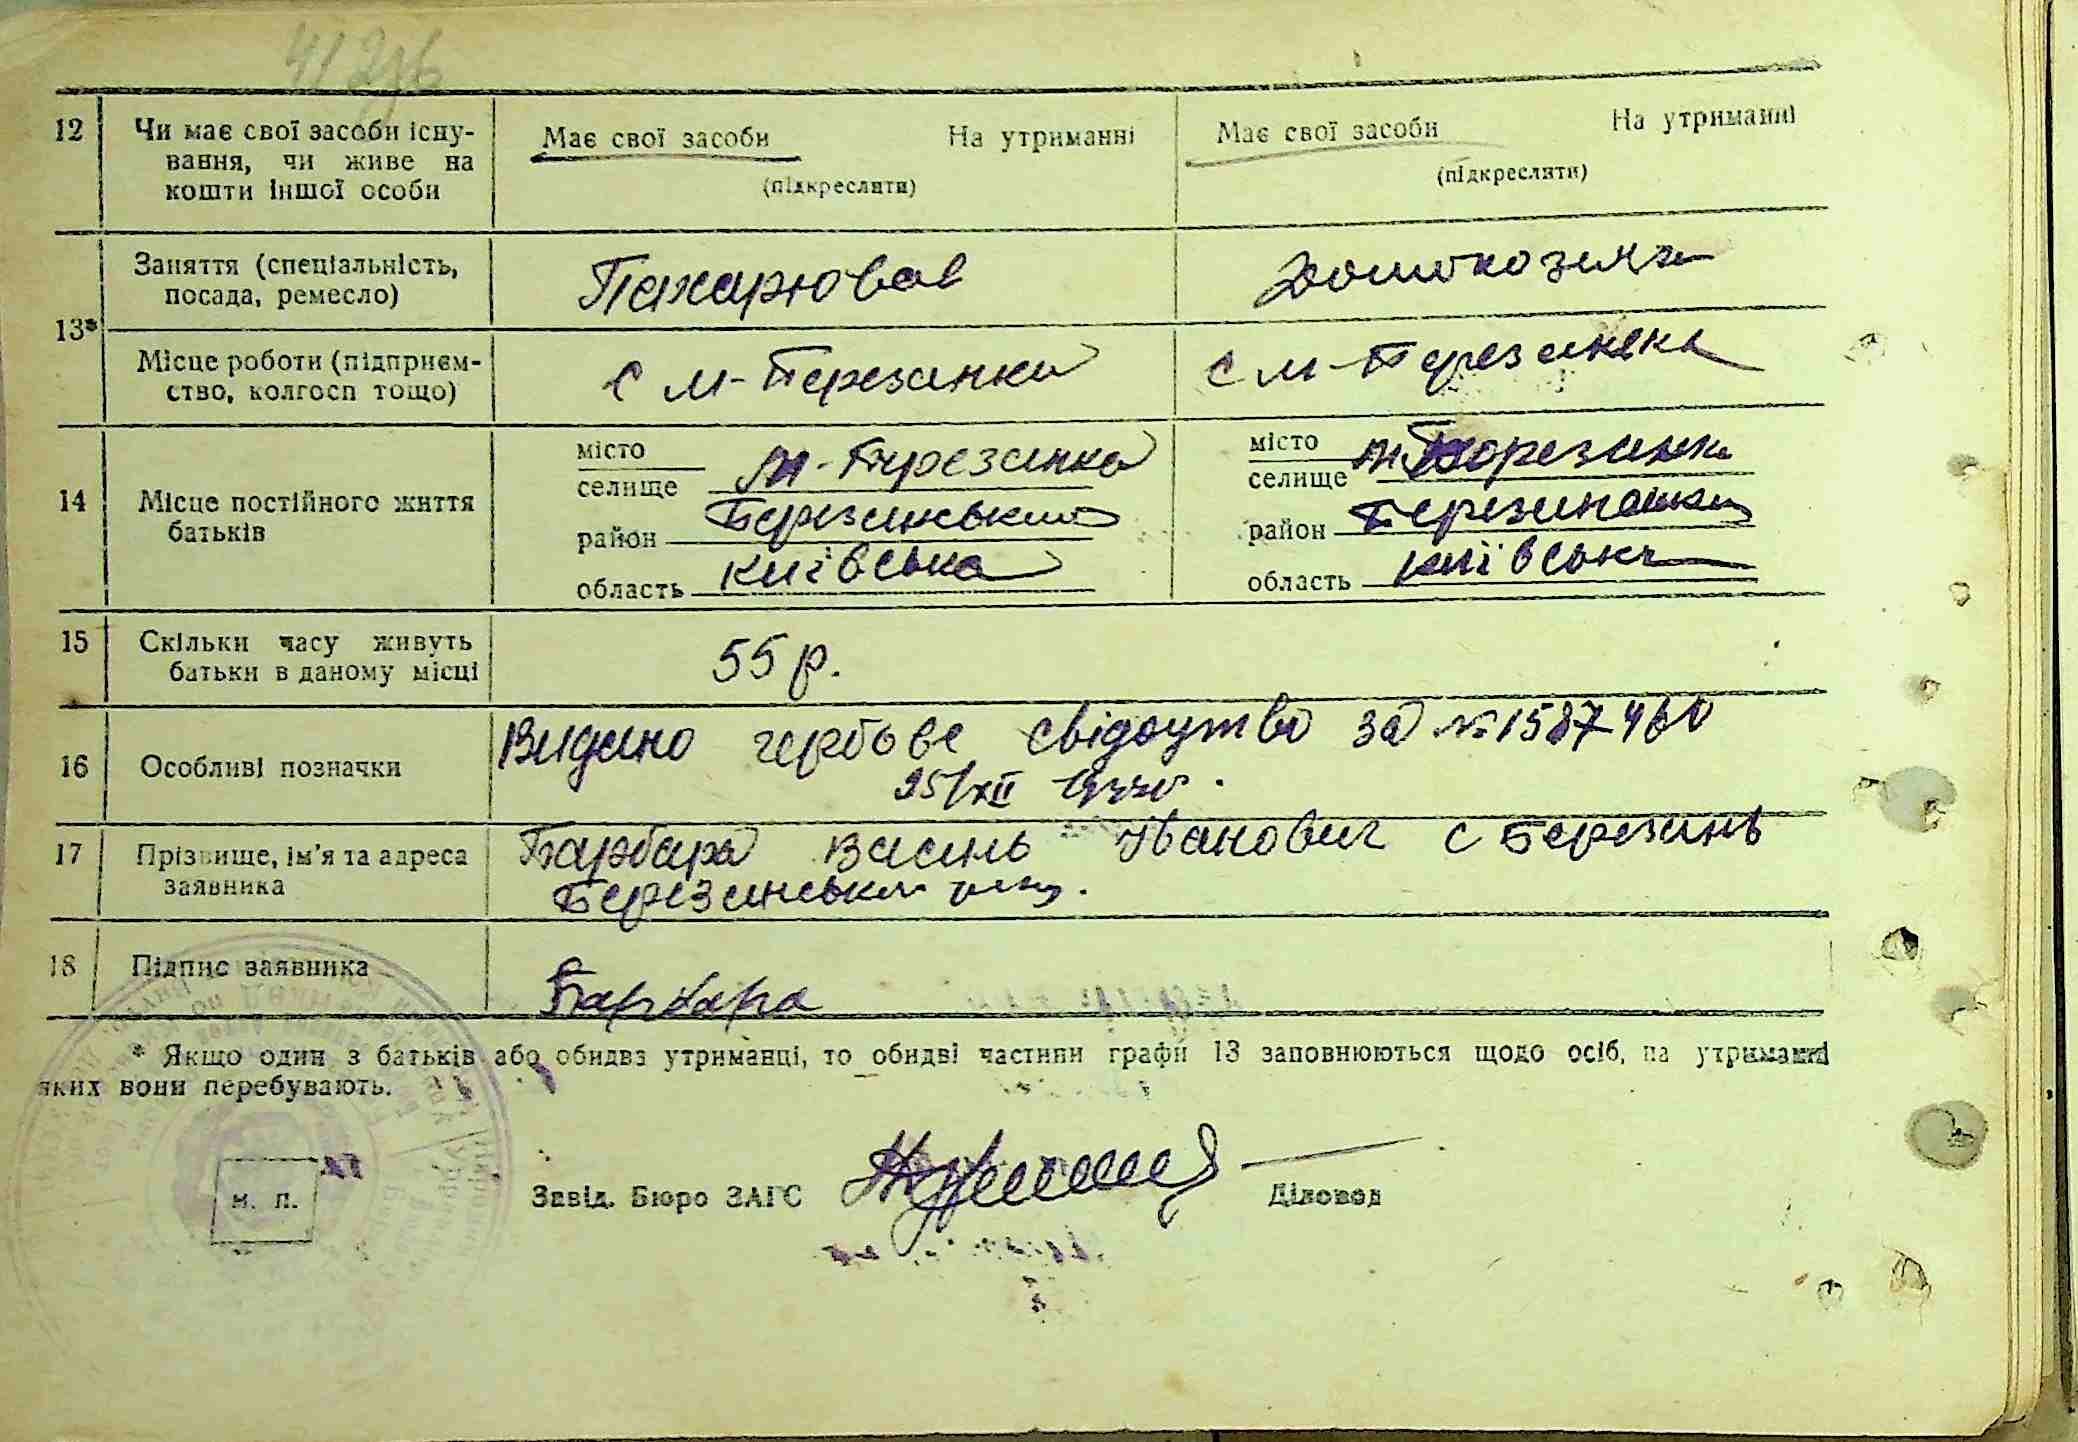 12 Чи має свої засоби існу-
вання, чи живе на
кошти іншої особи
Має свої засоби На утриманні
(підкреслити)
Має свої засоби На утриманні
(підкреслити)
13*
Заняття (спеціальність,
посада, ремесло)
Пахарював
Домохозяйка
Місце роботи (підприєм-
ство, колгосп тощо)
с м-Березанка
с м-Березанка
14 Місце постійного життя
батьків
місто
селище м-Березанка
район Березанський
область київська
місто
селище м Березанка
район Березанський
область київська
15 Скільки часу живуть
батьки в даному місці
55 р.
16 Особливі позначки
Видано гербове свідоцтво за № 1587460
25/XII 1944р.
17 Прізвище, ім'я та адреса
заявника
Барбара Василь Іванович с Березань
Березанськи
18 Підпис заявника
Барбара
* Якщо один з батьків або обидва утриманці, то обидві частини графи 13 заповнюються щодо осіб, на утриманні
яких вони перебувають.
м. п.
Завід. Бюро ЗАГС
Діловод